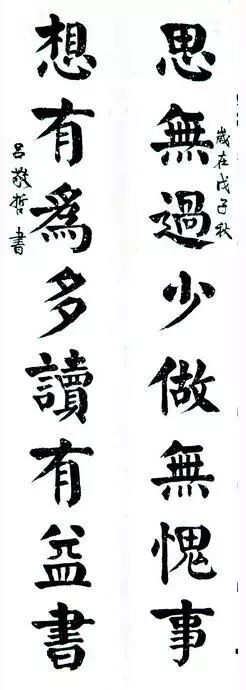 思無過少做無愧事
歲在戊子秋
想有為多讀有益書
呂敬哲書